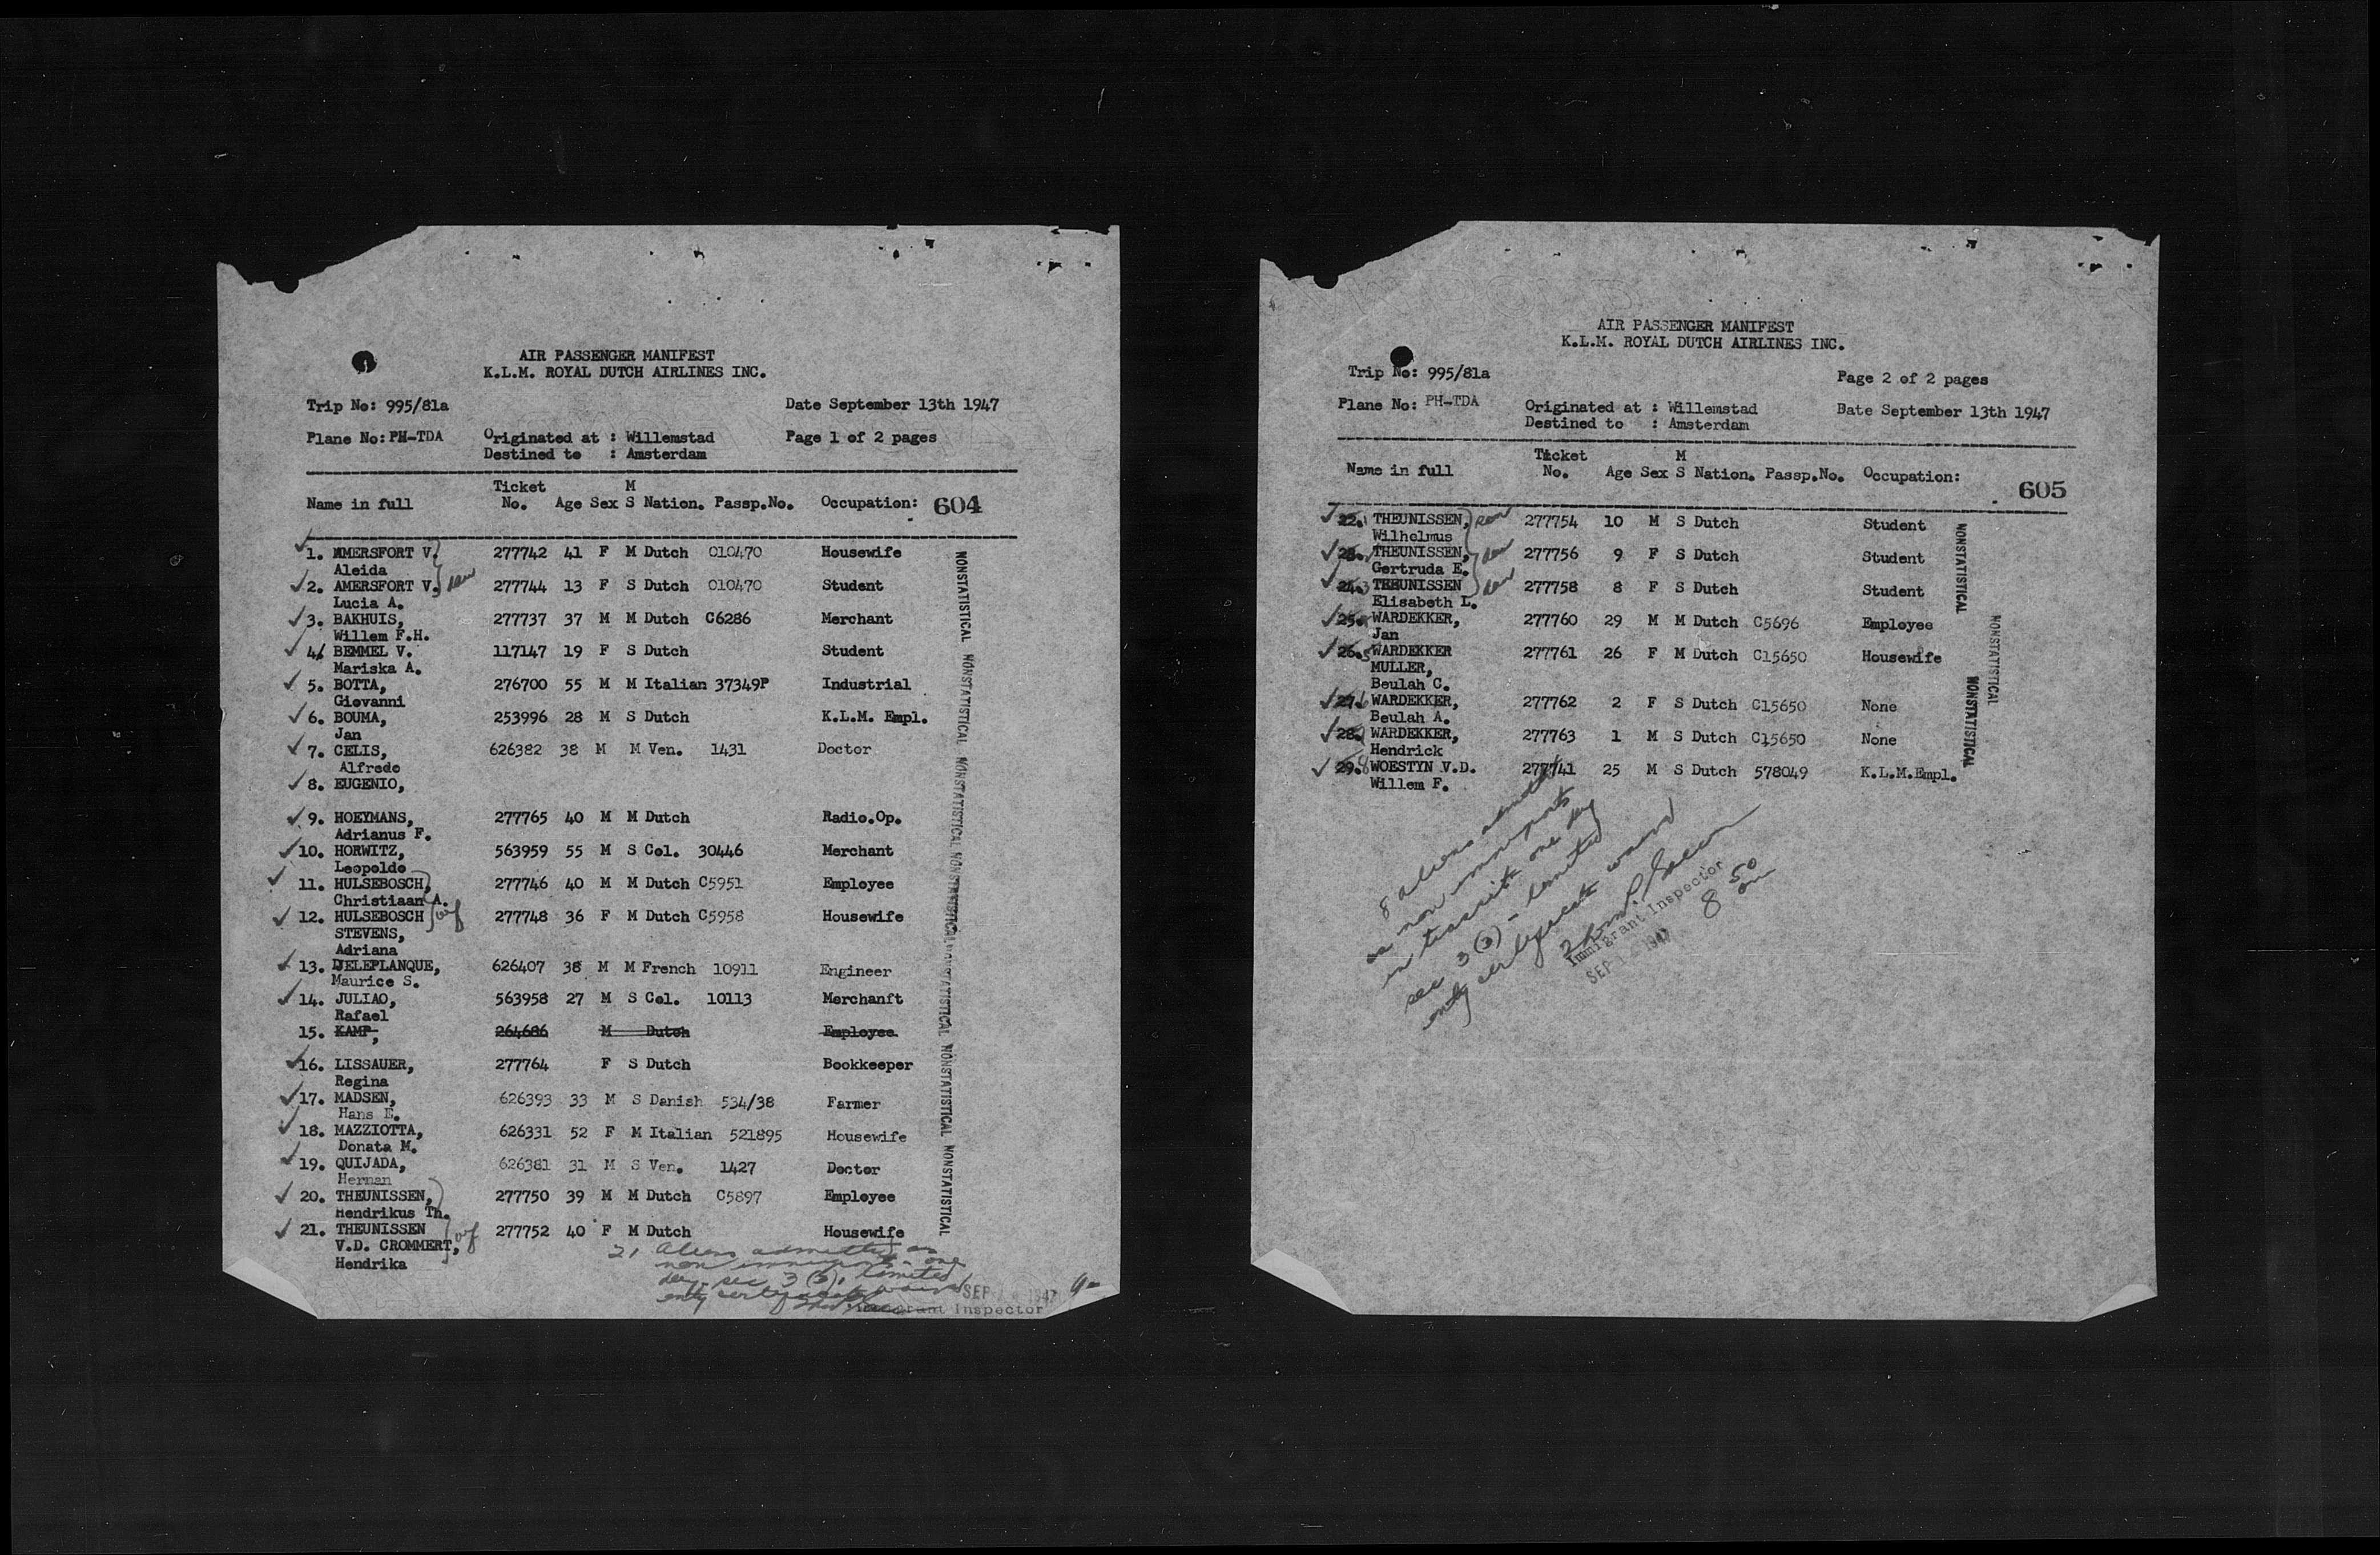 AIR PASSENGER MANIFEST
K.L.M. ROYAL DUTCH AIRLINES INC.
Trip No: 995/81a Date September 13th 1947
Plane No: PH-TDA Originated at : Willemstad Page 1 of 2 pages
Destined to : Amsterdam
Ticket M
Name in full No. Age Sex S Nation. Passp.No. Occupation: 604
1. AMERSFORT V. 277742 41 F M Dutch 010470 Housewife
Aleida
2. AMERSFORT V. 277744 13 F S Dutch 010470 Student
Lucia A.
3. BAKHUIS, 277737 37 M M Dutch C6286 Merchant
Willem F.H.
4. BEMMEL V. 117147 19 F S Dutch Student
Mariska A.
5. BOTTA, 276700 55 M M Italian 37349P Industrial
Giovanni
6. BOUMA, 253996 28 M S Dutch K.L.M. Empl.
Jan
7. CELIS, 626382 38 M M Ven. 1431 Doctor
Alfredo
8. EUGENIO,
9. HOEYMANS, 277765 40 M M Dutch Radio.Op.
Adrianus F.
10. HORWITZ, 563959 55 M S Col. 30446 Merchant
Leopoldo
11. HULSEBOSCH, 277746 40 M M Dutch C5951 Employee
Christiaan A.
12. HULSEBOSCH wf 277748 36 F M Dutch C5958 Housewife
STEVENS,
Adriana
13. DELEPLANQUE, 626407 38 M M French 10911 Engineer
Maurice S.
14. JULIAO, 563958 27 M S Col. 10113 Merchanft
Rafael
15. KAMP, 264686 M Dutch Employee
16. LISSAUER, 277764 F S Dutch Bookkeeper
Regina
17. MADSEN, 626393 33 M S Danish 534/38 Farmer
Hans E.
18. MAZZIOTTA, 626331 52 F M Italian 521895 Housewife
Donata M.
19. QUIJADA, 626381 31 M S Ven. 1427 Doctor
Hernan
20. THEUNISSEN, 277750 39 M M Dutch C5897 Employee
Hendrikus Th.
21. THEUNISSEN wf 277752 40 F M Dutch Housewife
V.D. CROMMERT,
Hendrika
NONSTATISTICAL NONSTATISTICAL NONSTATISTICAL NONSTATISTICAL NONSTATISTICAL NONSTATISTICAL NONSTATISTICAL
21 aliens admitted as
non immigrants - one
day - sec 3 (3), limited
entry certificate waived
SEP 1947
Immigrant Inspector
AIR PASSENGER MANIFEST
K.L.M. ROYAL DUTCH AIRLINES INC.
Trip No: 995/81a Page 2 of 2 pages
Plane No: PH-TDA Originated at : Willemstad Date September 13th 1947
Destined to : Amsterdam
Ticket M
Name in full No. Age Sex S Nation. Passp.No. Occupation: 605
22. THEUNISSEN, 277754 10 M S Dutch Student
Wilhelmus
23. THEUNISSEN, 277756 9 F S Dutch Student
Gertruda E.
24. THEUNISSEN 277758 8 F S Dutch Student
Elisabeth L.
25. WARDEKKER, 277760 29 M M Dutch C5696 Employee
Jan
26. WARDEKKER 277761 26 F M Dutch C15650 Housewife
MULLER,
Beulah C.
27. WARDEKKER, 277762 2 F S Dutch C15650 None
Beulah A.
28. WARDEKKER, 277763 1 M S Dutch C15650 None
Hendrick
29. WOESTYN V.D. 277741 25 M S Dutch 578049 K.L.M.Empl.
Willem F.
NONSTATISTICAL
NONSTATISTICAL
NONSTATISTICAL
8 aliens admitted
as non immigrants
in transit one day
sec 3 (3) - limited
entry certificate waived
Immigrant Inspector
SEP 1947
8 50 am